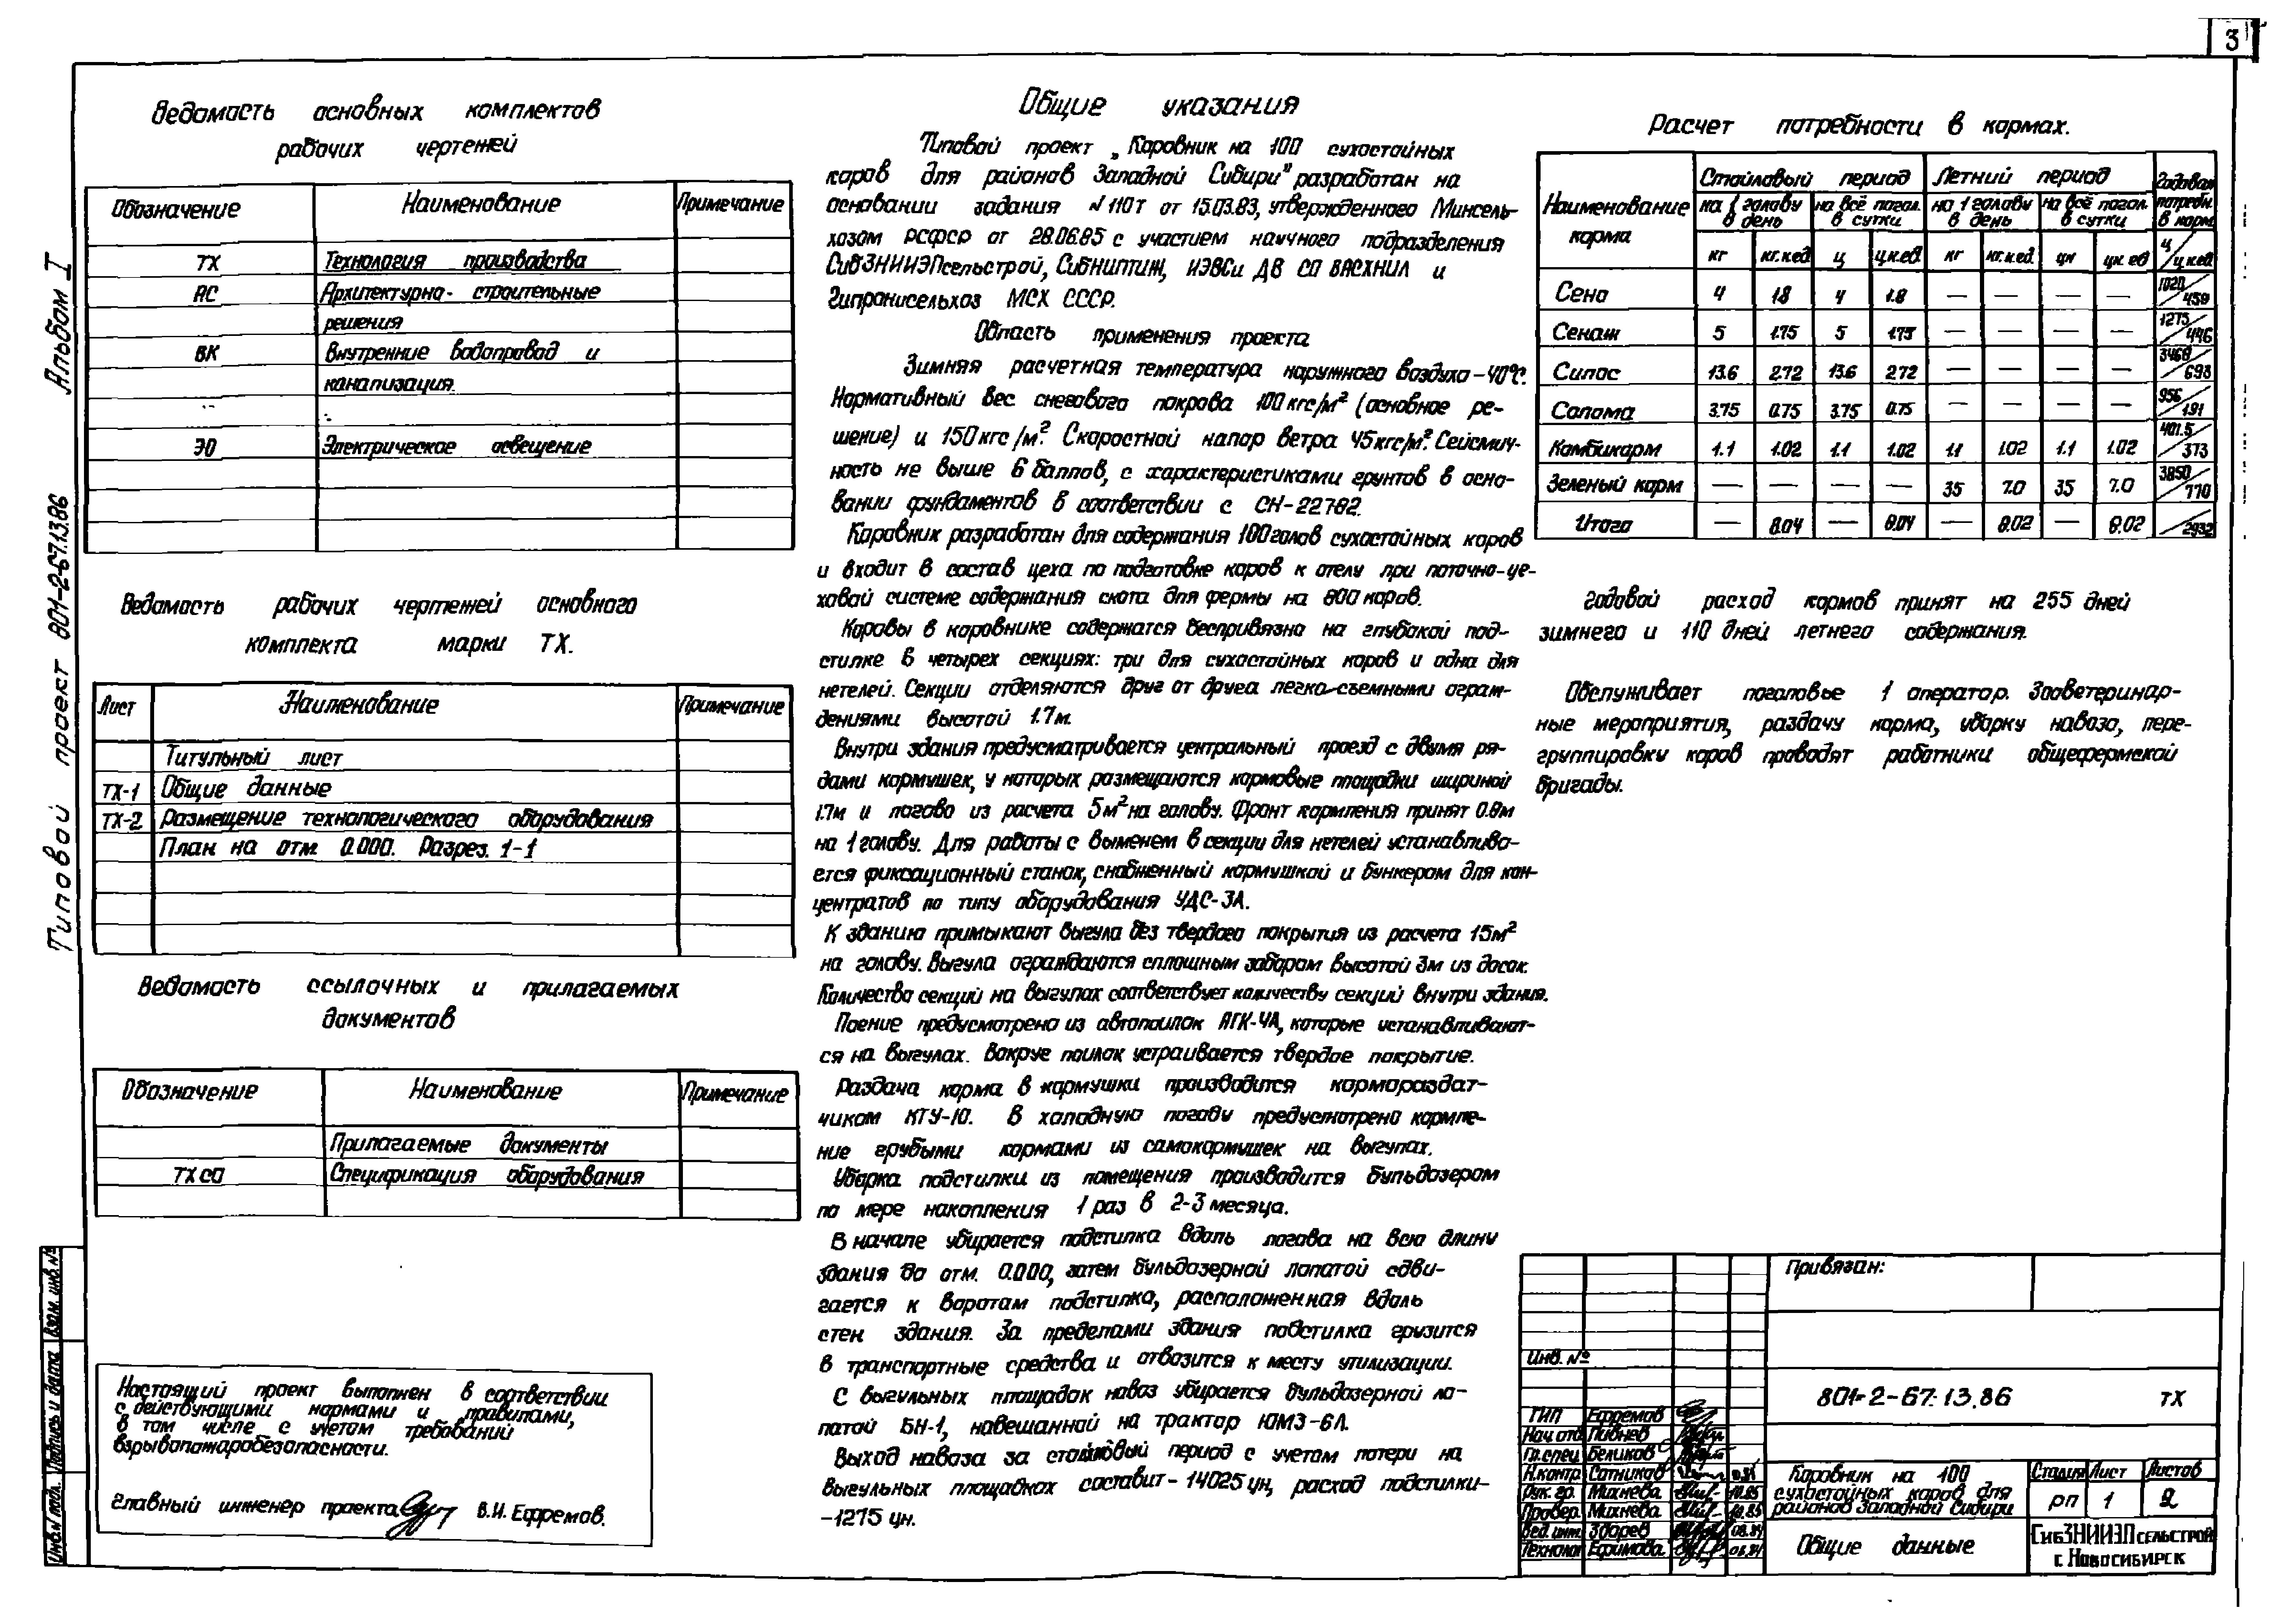 3
Альбом I
Типовой проект 801-2-67.13.86
Ведомость основных комплектов
рабочих чертежей
Обозначение Наименование Примечание
ТХ Технология производства
АС Архитектурно- строительные
решения
ВК Внутренние водопровод и
канализация.
ЭО Электрическое освещение
Ведомость рабочих чертежей основного
комплекта марки ТХ.
Лист Наименование Примечание
Титульный лист
ТХ-1 Общие данные
ТХ-2 Размещение технологического оборудования
План на отм. 0.000. Разрез. 1-1
Ведомость ссылочных и прилагаемых
документов
Обозначение Наименование Примечание
Прилагаемые документы
ТХ СО Спецификация оборудования
Настоящий проект выполнен в соответствии
с действующими нормами и правилами,
в том числе с учетом требований
взрывопожаробезопасности.
Главный инженер проекта В.И. Ефремов.
Общие указания
Типовой проект „Коровник на 100 сухостойных
коров для районов Западной Сибири" разработан на
основании задания № 110т от 15.03.83, утвержденного Минсель-
хозом РСФСР от 28.06.85 с участием научного подразделения
СибЗНИИЭПсельстрой, СибНИПТИЖ, ИЭВСи ДВ СО ВАСХНИЛ и
Гипронисельхоз МСХ СССР.
Область применения проекта
Зимняя расчетная температура наружного воздуха -40°С.
Нормативный вес снегового покрова 100 кгс/м² (основное ре-
шение) и 150 кгс/м². Скоростной напор ветра 45 кгс/м². Сейсмич-
ность не выше 6 баллов, с характеристиками грунтов в осно-
вании фундаментов в соответствии с СН-227.82.
Коровник разработан для содержания 100 голов сухостойных коров
и входит в состав цеха по подготовке коров к отелу при поточно-це-
ховой системе содержания скота для фермы на 800 коров.
Коровы в коровнике содержатся беспривязно на глубокой под-
стилке в четырех секциях: три для сухостойных коров и одна для
нетелей. Секции отделяются друг от друга легко-съемными ограж-
дениями высотой 1.7м.
Внутри здания предусматривается центральный проезд с двумя ря-
дами кормушек, у которых размещаются кормовые площадки шириной
1.7м и логово из расчета 5м² на голову. Фронт кормления принят 0.8м
на 1 голову. Для работы с выменем в секции для нетелей устанавлива-
ется фиксационный станок, снабженный кормушкой и бункером для кон-
центратов по типу оборудования УДС-3А.
К зданию примыкают выгула без твердого покрытия из расчета 15м²
на голову. Выгула ограждаются сплошным забором высотой 3м из досок.
Количество секций на выгулах соответствует количеству секций внутри здания.
Поение предусмотрено из автопоилок АГК-4А, которые устанавливают-
ся на выгулах. Вокруг поилок устраивается твердое покрытие.
Раздача корма в кормушки производится кормораздат-
чиком КТУ-10. В холодную погоду предусмотрено кормле-
ние грубыми кормами из самокормушек на выгулах.
Уборка подстилки из помещения производится бульдозером
по мере накопления 1 раз в 2-3 месяца.
В начале убирается подстилка вдоль логова на всю длину
здания до отм. 0.000, затем бульдозерной лопатой сдви-
гается к воротам подстилка, расположенная вдоль
стен здания. За пределами здания подстилка грузится
в транспортные средства и отвозится к месту утилизации.
С выгульных площадок навоз убирается бульдозерной ло-
патой БН-1, навешанной на трактор ЮМЗ-6Л.
Выход навоза за стойловый период с учетом потери на
выгульных площадках составит - 14025 цн, расход подстилки-
-1275 цн.
Расчет потребности в кормах.
Наименование корма Стойловый период Летний период Годовая потребн. в корм.
на 1 голову в день на всё погол. в сутки на 1 голову в день на всё погол. в сутки
кг кг.к.ед ц ц.к.ед кг кг.к.ед цн цк.ед ц/ц к.ед
Сено 4 1.8 4 1.8 — — — — 1020/459
Сенаж 5 1.75 5 1.75 — — — — 1275/446
Силос 13.6 2.72 13.6 2.72 — — — — 3468/693
Солома 3.75 0.75 3.75 0.75 — — — — 956/191
Комбикорм 1.1 1.02 1.1 1.02 1.1 1.02 1.1 1.02 401.5/373
Зеленый корм — — — — 35 7.0 35 7.0 3850/770
Итого — 8.04 — 8.04 — 8.02 — 8.02 /2932
Годовой расход кормов принят на 255 дней
зимнего и 110 дней летнего содержания.
Обслуживает поголовье 1 оператор. Зооветеринар-
ные мероприятия, раздачу корма, уборку навоза, пере-
группировку коров проводят работники общефермской
бригады.
Взам. инв. №
Подпись и дата
Инв. № подл.
Привязан:
Инв. №
801-2-67.13.86 ТХ
ГИП Ефремов
Нач. отд Пивнев
Гл. спец Беликов
Н.контр. Сотников
Рук. гр. Михнева 10.85
Провер. Михнева 10.85
Вед. инж. Зборев 08.84
Технолог Ефимова 06.84
Коровник на 100
сухостойных коров для
районов Западной Сибири
Стадия Лист Листов
РП 1 2
Общие данные
СибЗНИИЭПсельстрой
г. Новосибирск